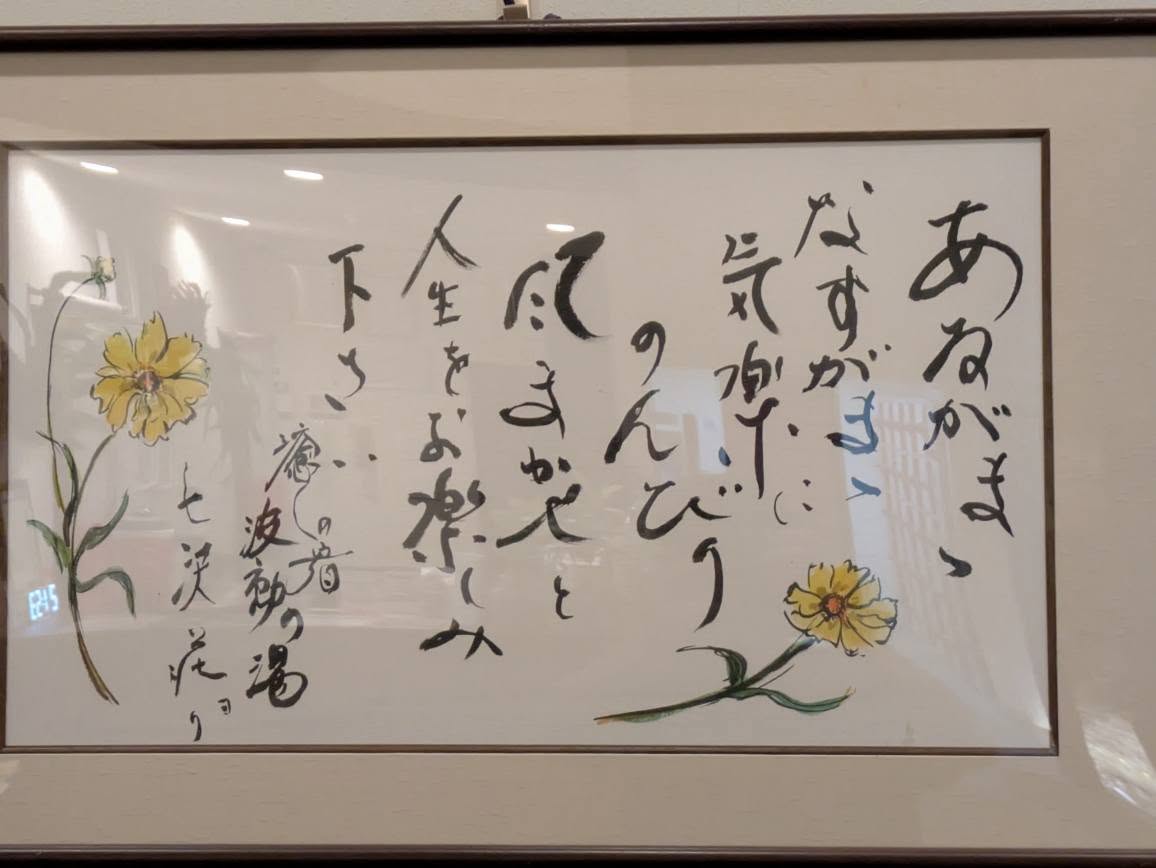 あるがまゝ
なすがまゝ
気楽に
のんびり
風まかせと
人生をお楽しみ
下さい
癒しの宿
波動の湯
七沢荘より